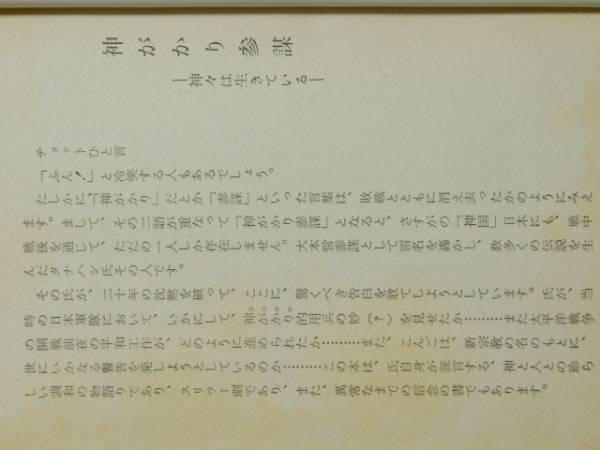 神がかり参謀
―神々は生きている―
チョットひと言
「ふん！」と冷笑する人もあるでしょう。
たしかに、「神がかり」だとか「参謀」といった言葉は、敗戦とともに消え去ったかのようにみえ
ます。まして、その二語が重なって「神がかり参謀」となると、さすがの「神国」日本にも、戦中
戦後を通じて、ただの一人しか存在しません。大本営参謀として雷名を轟かし、数多くの伝説を生
んだタナハシ氏その人です。
その氏が、二十年の沈黙を破って、ここに、驚くべき告白を敢てしようとしています。氏が、当
時の日本軍隊において、いかにして、神がかり的用兵の妙（？）を見せたか…………また太平洋戦争
の開戦前夜の平和工作が、どのように進められたか…………また、こんごは、新宗教の名のもとに、
世にいかなる警告を発しようとしているのか…………この本は、氏自身が証言する、神と人との珍ら
しい調和の物語りであり、スリラー劇であり、また、異常なまでの信念の書でもあります。